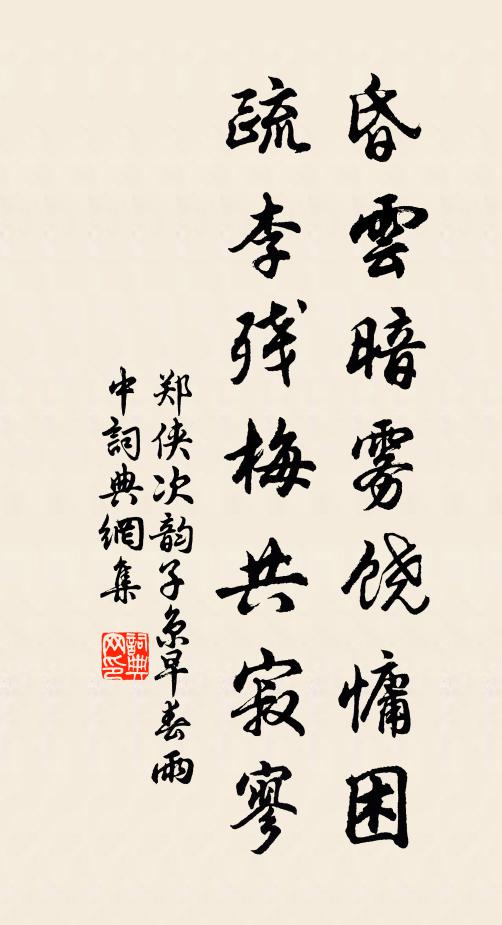 昏雲暗雾饶慵困
疏李残梅共寂寥
郑侠次韵子京早春雨
中詞典網集
詞典網印